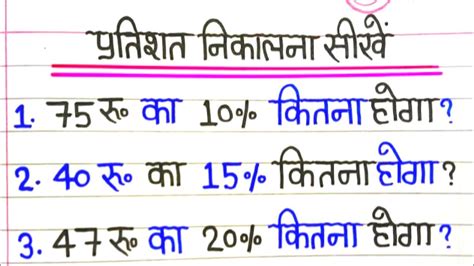 प्रतिशत निकालना सीखें
1. 75 रु० का 10% कितना होगा?
2. 40 रु० का 15% कितना होगा?
3. 47 रु० का 20% कितना होगा?